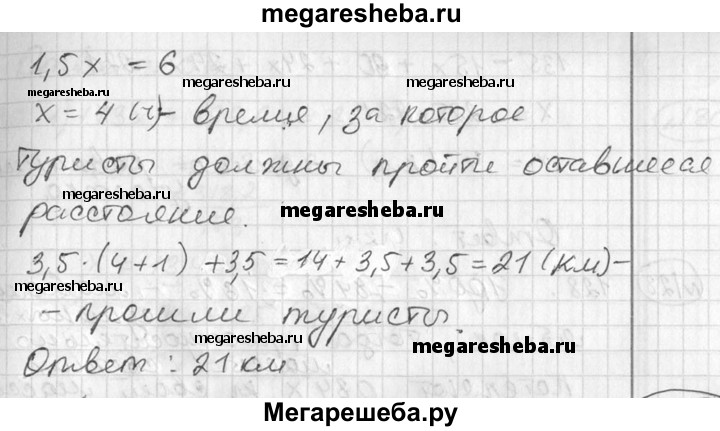 megaresheba.ru
1,5x = 6
megaresheba.ru megaresheba.ru
megaresheba.ru
x = 4 (ч) - время, за которое
туристы должны пройти оставшееся
megaresheba.ru
расстояние. megaresheba.ru
3,5·(4+1) +3,5 = 14 + 3,5 + 3,5 = 21 (км) -
megaresheba.ru megaresheba.ru
- прошли туристы.
megaresheba.ru megaresheba.ru
Ответ : 21 км
Мегарешеба.ру